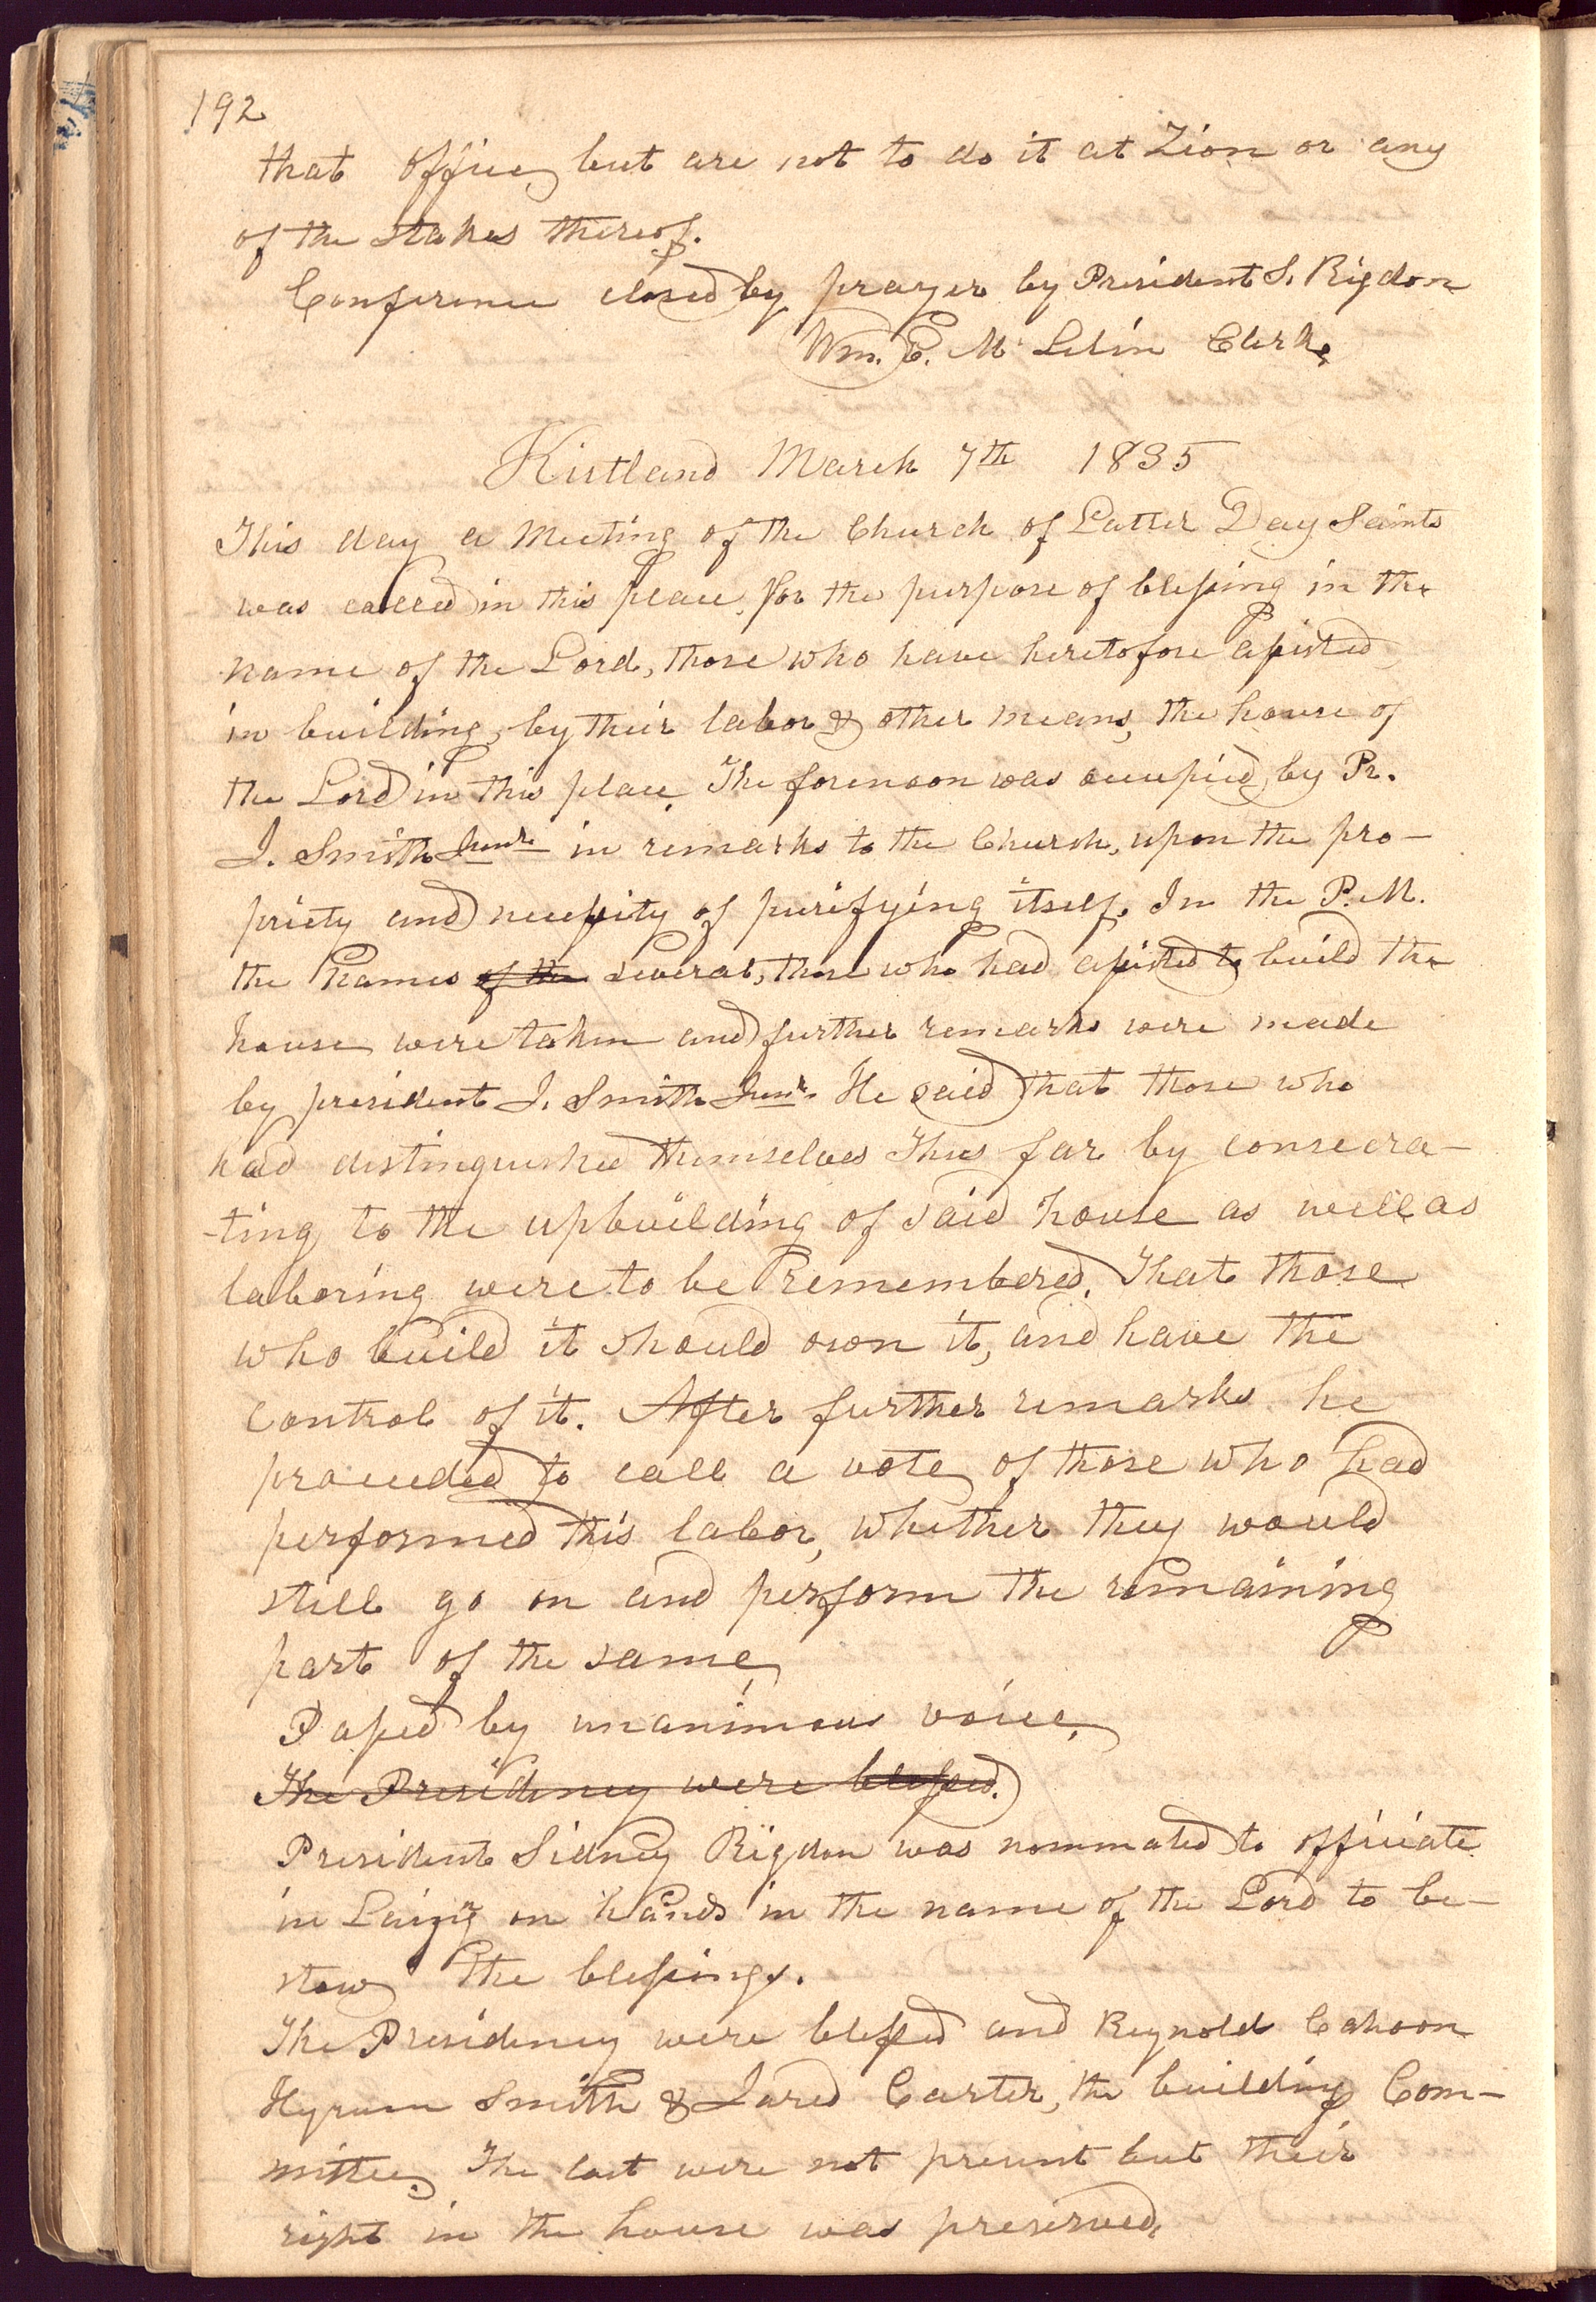 192
that office, but are not to do it at Zion or any
of the stakes thereof.
Conference closed by prayer by President S. Rigdon
Wm. E. Mc Lelin Clerk,
Kirtland March 7th 1835
This day a Meeting of the Church of Latter Day Saints
was called in this place, for the purpose of blessing in the
name of the Lord, those who have heretofore assisted
in building, by their labor & other means, the house of
the Lord in this place. The forenoon was occupied, by Pr.
J. Smith Junr. in remarks to the Church, upon the pro-
priety and necessity of purifying itself. In the P.M.
the names of the several, those who had assisted to build the
house were taken and further remarks were made
by president J. Smith Junr. He said that those who
had distinguished themselves thus far by consecra-
-ting to the upbuilding of said house as well as
laboring were to be remembered. That those
who build it should own it, and have the
control of it. After further remarks he
proceeded to call a vote of those who had
performed this labor, whether they would
still go on and perform the remaining
part of the same
Passed by unanimous voice,
The Presidency were blessed.
President Sidney Rigdon was nommated to officiate
in Laizng on hands in the name of the Lord to be-
stow the blessings.
The Presidency were blessed and Reynold Cahoon
Hyrum Smith & Jared Carter, the building Com-
mittee, The last were not present but their
right in the house was preserved,